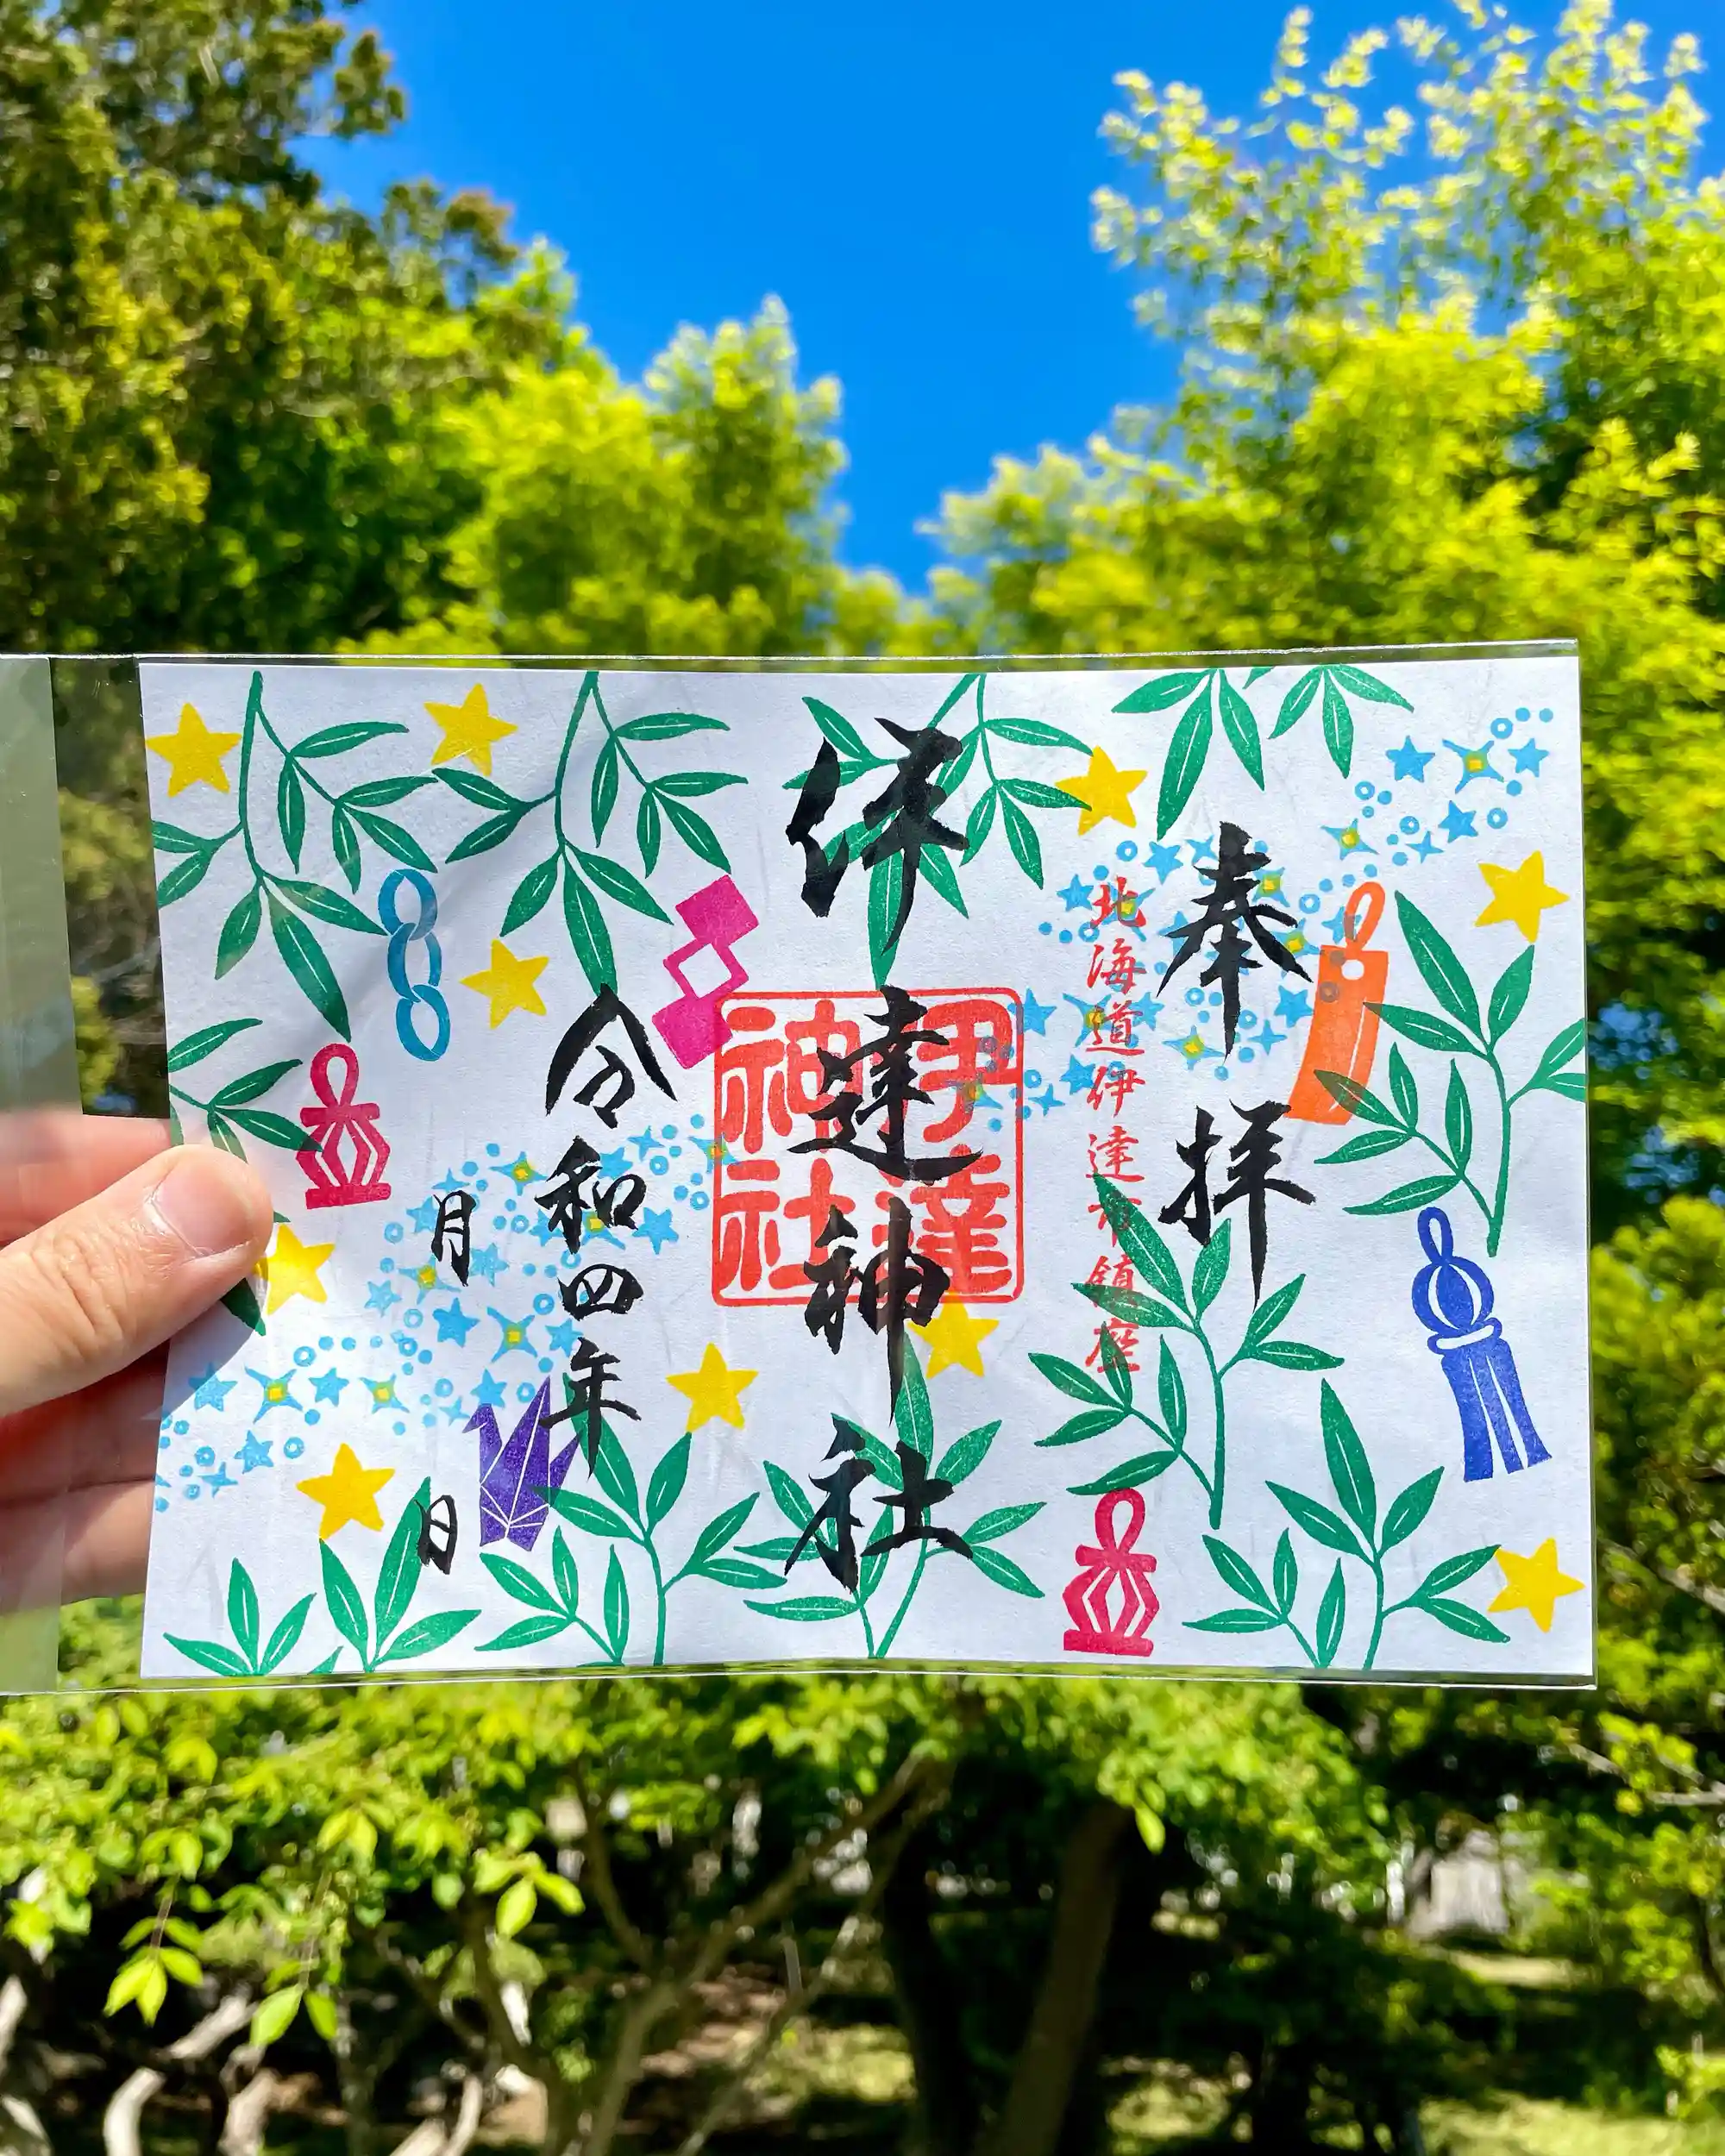 奉拝
北海道伊達市鎮座
伊達神社
伊達神社
令和四年
月 日